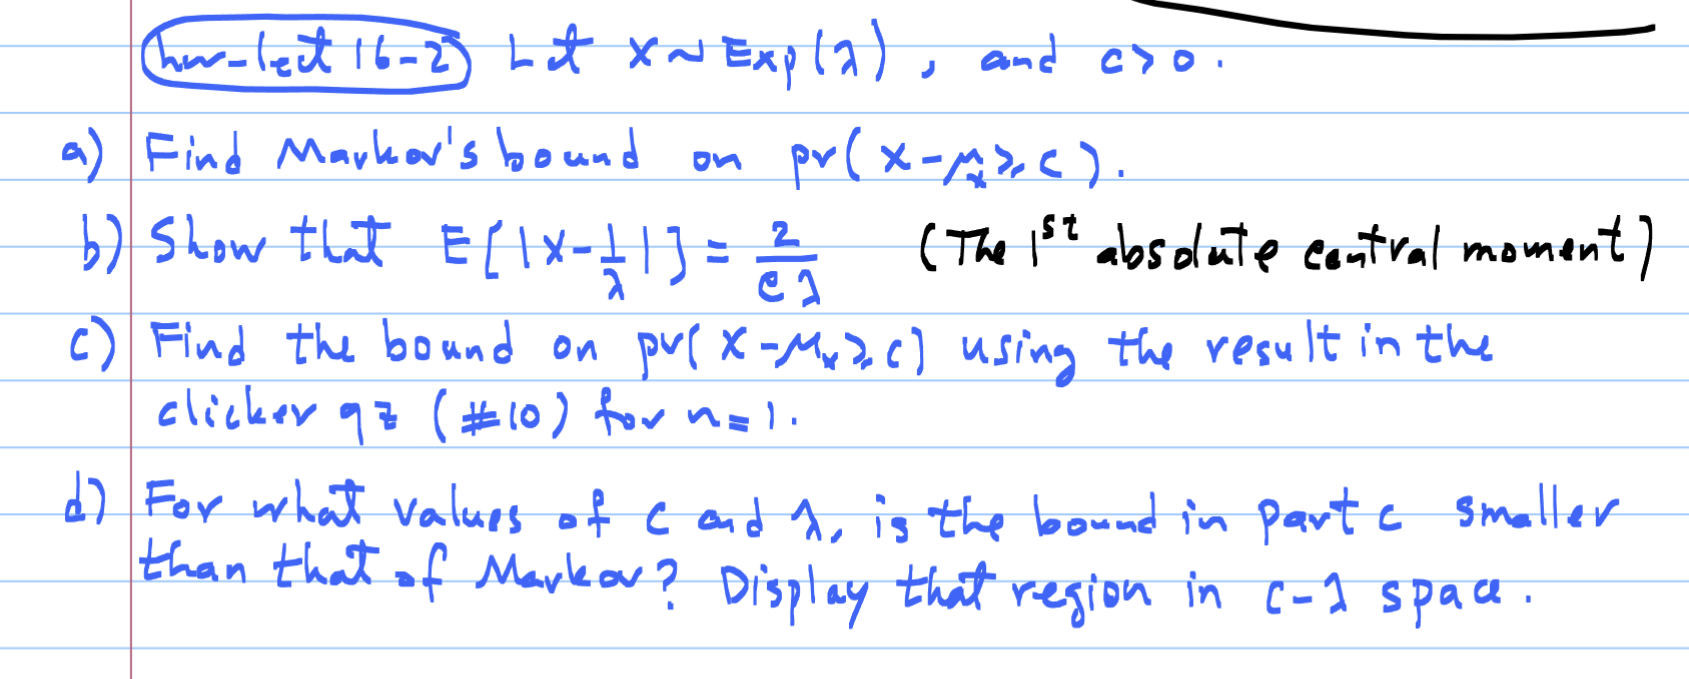 hw-lect 16-2 Let X ~ Exp(λ), and c > 0.
a) Find Markov's bound on pr(X - μₓ ≥ c).
b) Show that E[|X - 1/λ|] = 2/(eλ) (The 1st absolute central moment)
c) Find the bound on pr(X - μₓ ≥ c) using the result in the
clicker qz (#10) for n=1.
d) For what values of c and λ, is the bound in part c smaller
than that of Markov? Display that region in c-λ space.